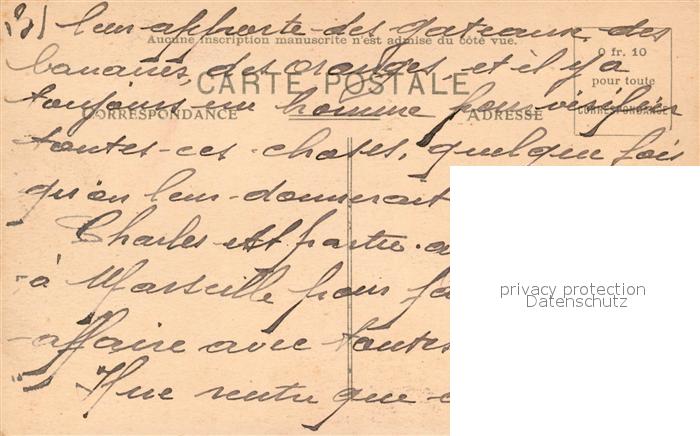 3) leur apporte des gateaux, des
Aucune inscription manuscrite n'est admise du côté vue.
0 fr. 10
bananes, des oranges, et il y a
CARTE POSTALE
pour toute
toujours un homme pour vérifier
CORRESPONDANCE
ADRESSE
CORRESPONDANCE
toutes ces choses, quelque fois
qu'on leur donnerait
Charles est partu
à Marseille pour
privacy protection
Datenschutz
affaire avec toutes
que